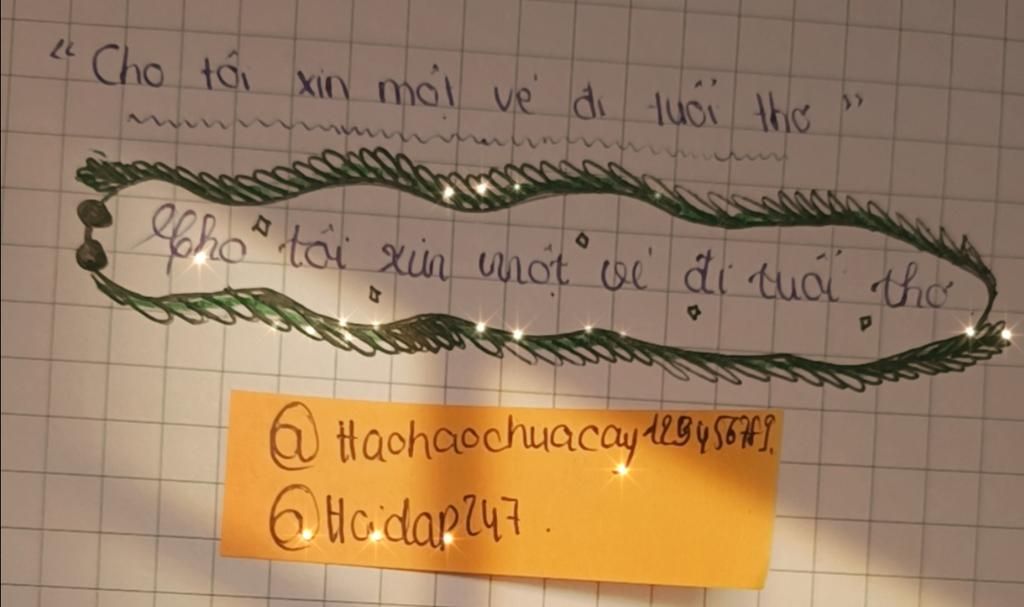 “Cho tôi xin một vé đi tuổi thơ”
Cho tôi xin một vé đi tuổi thơ
@Haohaochuacay123456789.
@Hoidap247.